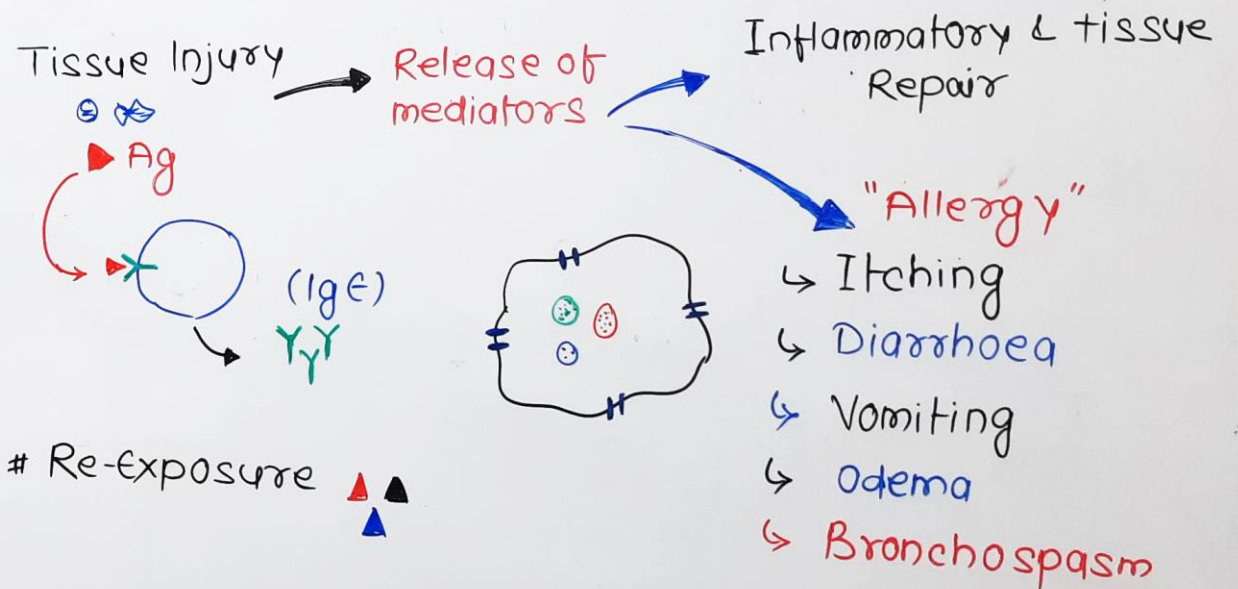 Tissue Injury
Release of
mediators
Inflammatory & tissue
Repair
Ag
(IgE)
# Re-Exposure
"Allergy"
↳ Itching
↳ Diarrhoea
↳ Vomiting
↳ Odema
↳ Bronchospasm